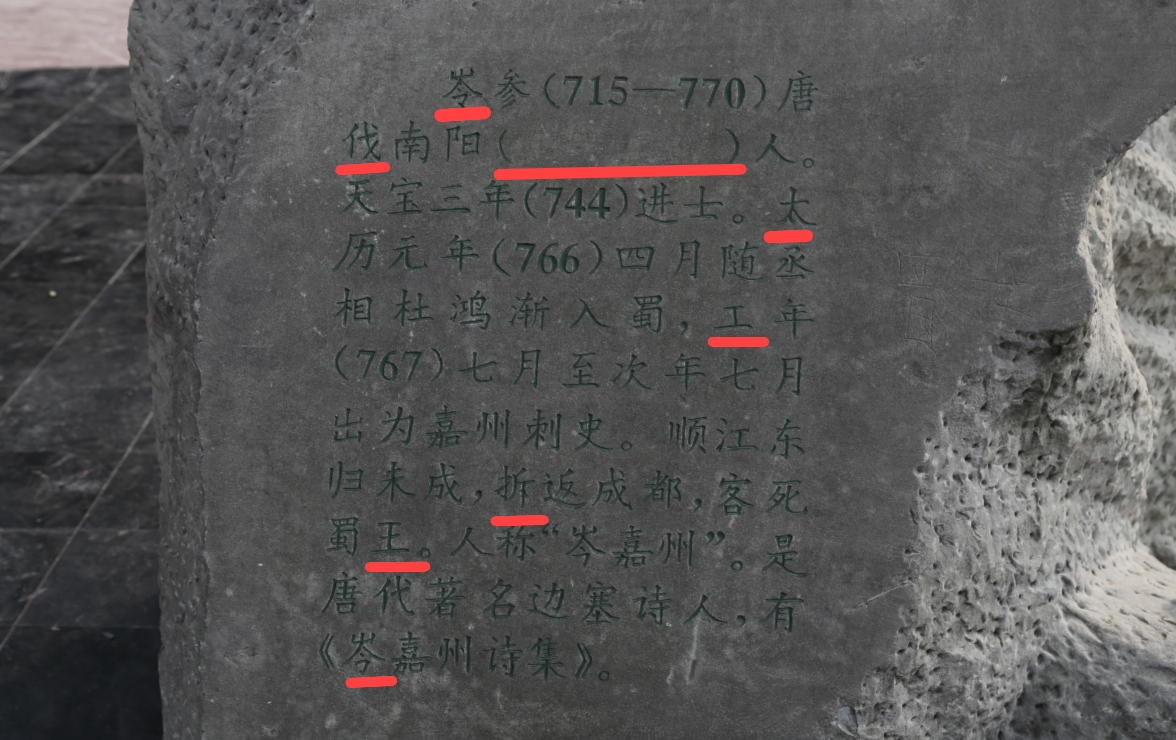 岺参(715—770)唐
伐南阳(　　　　)人。
天宝三年(744)进士。太
历元年(766)四月随丞
相杜鸿渐入蜀，工年
(767)七月至次年七月
出为嘉州刺史。顺江东
归未成，拆返成都，客死
蜀王。人称“岑嘉州”。是
唐代著名边塞诗人，有
《岺嘉州诗集》。